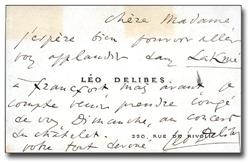 chère Madame
j'espère bien pouvoir aller
vous applaudir dans Lakmé
à Francfort mais avant je
LÉO DELIBES
compte venir prendre congé
de vous Dimanche, au concert
du châtelet.
220, RUE DE RIVOLI
votre tout dévoué Léo Delibes